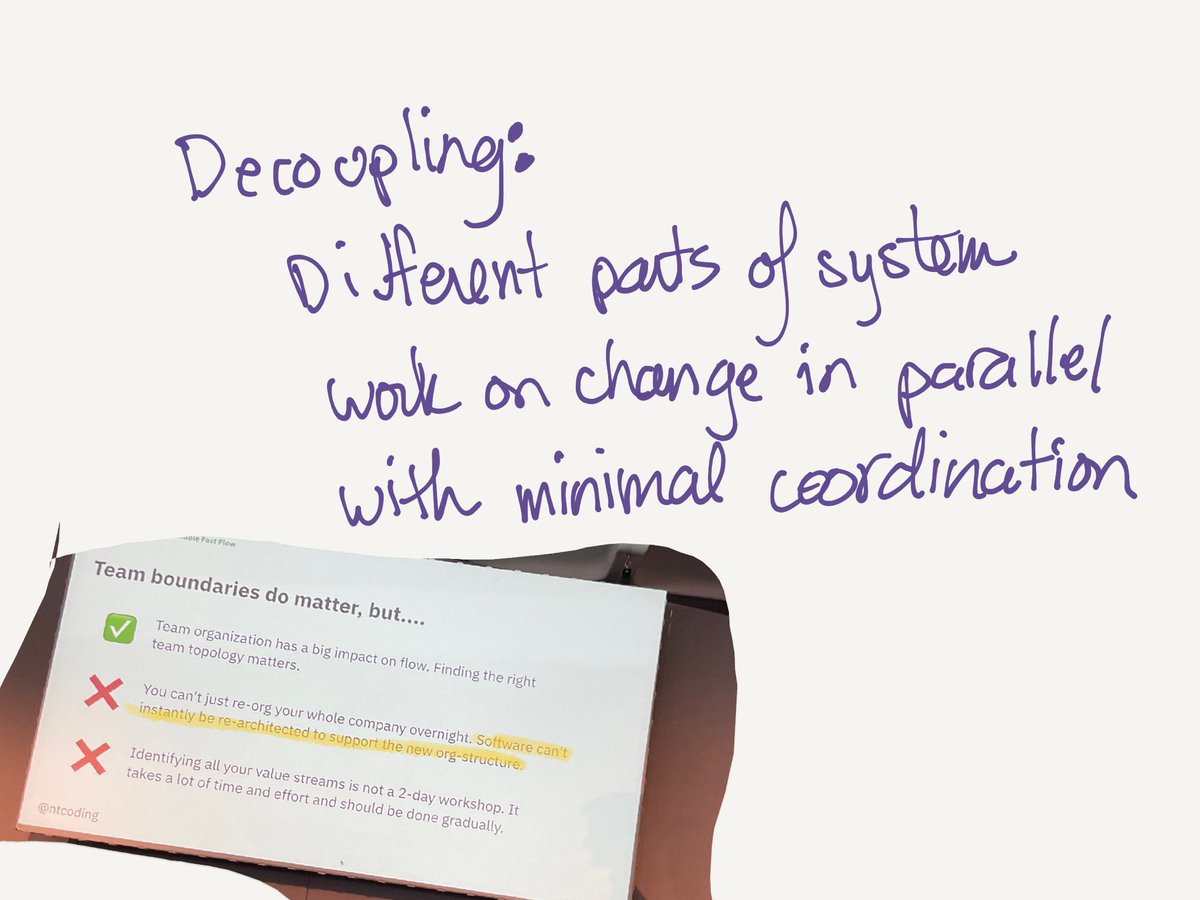 Decoupling:
Different parts of system
work on change in parallel
with minimal coordination
Fast Flow
Team boundaries do matter, but....
Team organization has a big impact on flow. Finding the right
team topology matters.
You can't just re-org your whole company overnight. Software can't
instantly be re-architected to support the new org-structure.
Identifying all your value streams is not a 2-day workshop. It
takes a lot of time and effort and should be done gradually.
@ntcoding